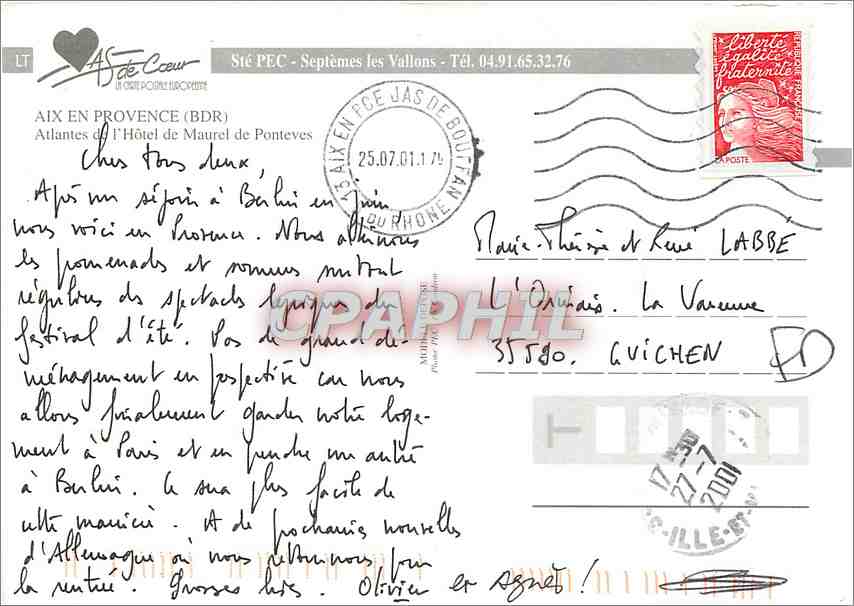 LT
As de Cœur
LA CARTE POSTALE EUROPÉENNE
Sté PEC - Septèmes les Vallons - Tél. 04.91.65.32.76
AIX EN PROVENCE (BDR)
Atlantes de l'Hôtel de Maurel de Ponteves
13 AIX EN PCE JAS DE BOUFFAN
25.07.01
DU RHONE
liberté
égalité
fraternité
RÉPUBLIQUE FRANÇAISE
LA POSTE
Chers tous deux,
Après un séjour à Berlin en juin,
nous voici en Provence. Nous
les promenades et sommes surtout
réguliers des spectacles lyriques du
festival d'été. Pas de grand dé-
ménagement en perspective car nous
allons finalement garder notre loge-
ment à Paris et en prendre un autre
à Berlin. Ce sera plus facile de
cette manière. A de prochaines nouvelles
d'Allemagne où nous retournons pour
la rentrée. Grosses bises. Olivier et Agnès!
CPAPHIL
Marie-Thérèse et René LABBÉ
La Varenne
35580. GUICHEN
T
17 H30
27-7
2001
ILLE-ET-